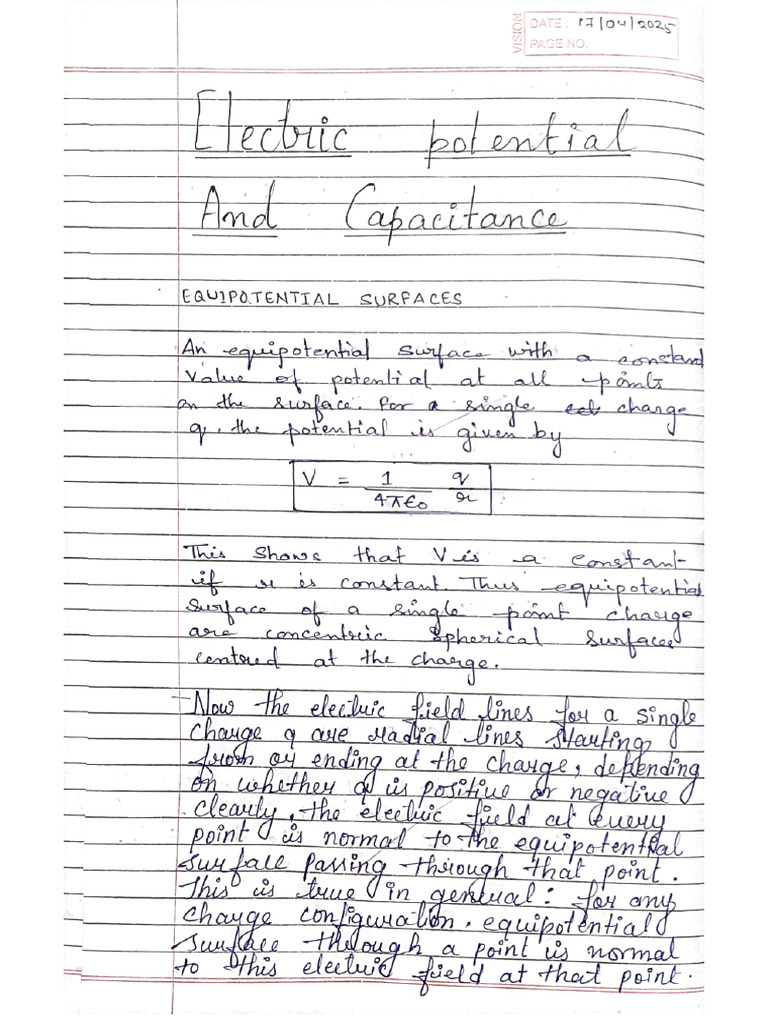 VISION
DATE: 17/04/2025
PAGE NO.
Electric potential
And Capacitance
EQUIPOTENTIAL SURFACES
An equipotential surface with a constand
value of potential at all points
on the surface. for a single charge
q, the potential is given by
V = 1/4πε₀ q/r
This shows that V is a constant
if r is constant. Thus equipotential
surface of a single point charge
are concentric spherical surfaces
centred at the charge.
Now the electric field lines for a single
charge q are radial lines starting
from or ending at the charge, depending
on whether q is positive or negative
clearly, the electric field at every
point is normal to the equipotential
surface passing through that point.
This is true in general: for any
charge configuration, equipotential
surface through a point is normal
to this electric field at that point.